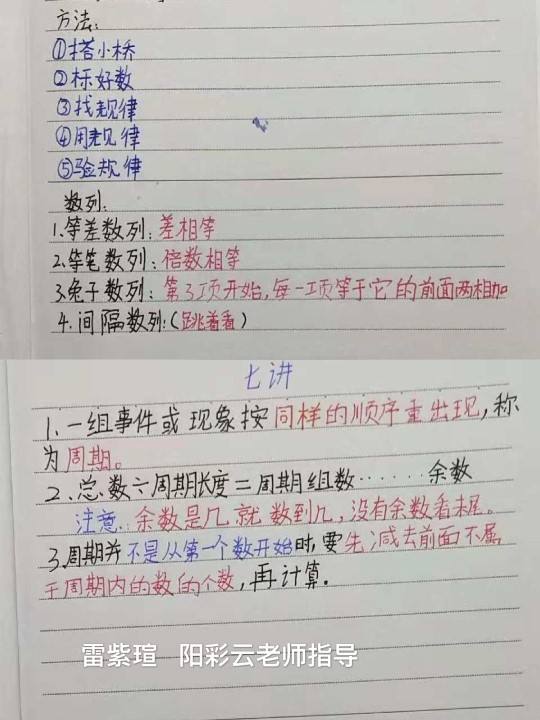 方法:
①搭小桥
②标好数
③找规律
④用规律
⑤验规律
数列:
1.等差数列:差相等
2.等笔数列:倍数相等
3.兔子数列:第3项开始,每一项等于它的前面两相加
4.间隔数列:(跳着看)
七讲
1.一组事件或现象按同样的顺序重出现,称
为周期。
2.总数÷周期长度=周期组数······余数
注意:余数是几就数到几,没有余数看末尾。
3.周期并不是从第一个数开始时,要先减去前面不属
于周期内的数的个数,再计算。
雷紫瑄 阳彩云老师指导